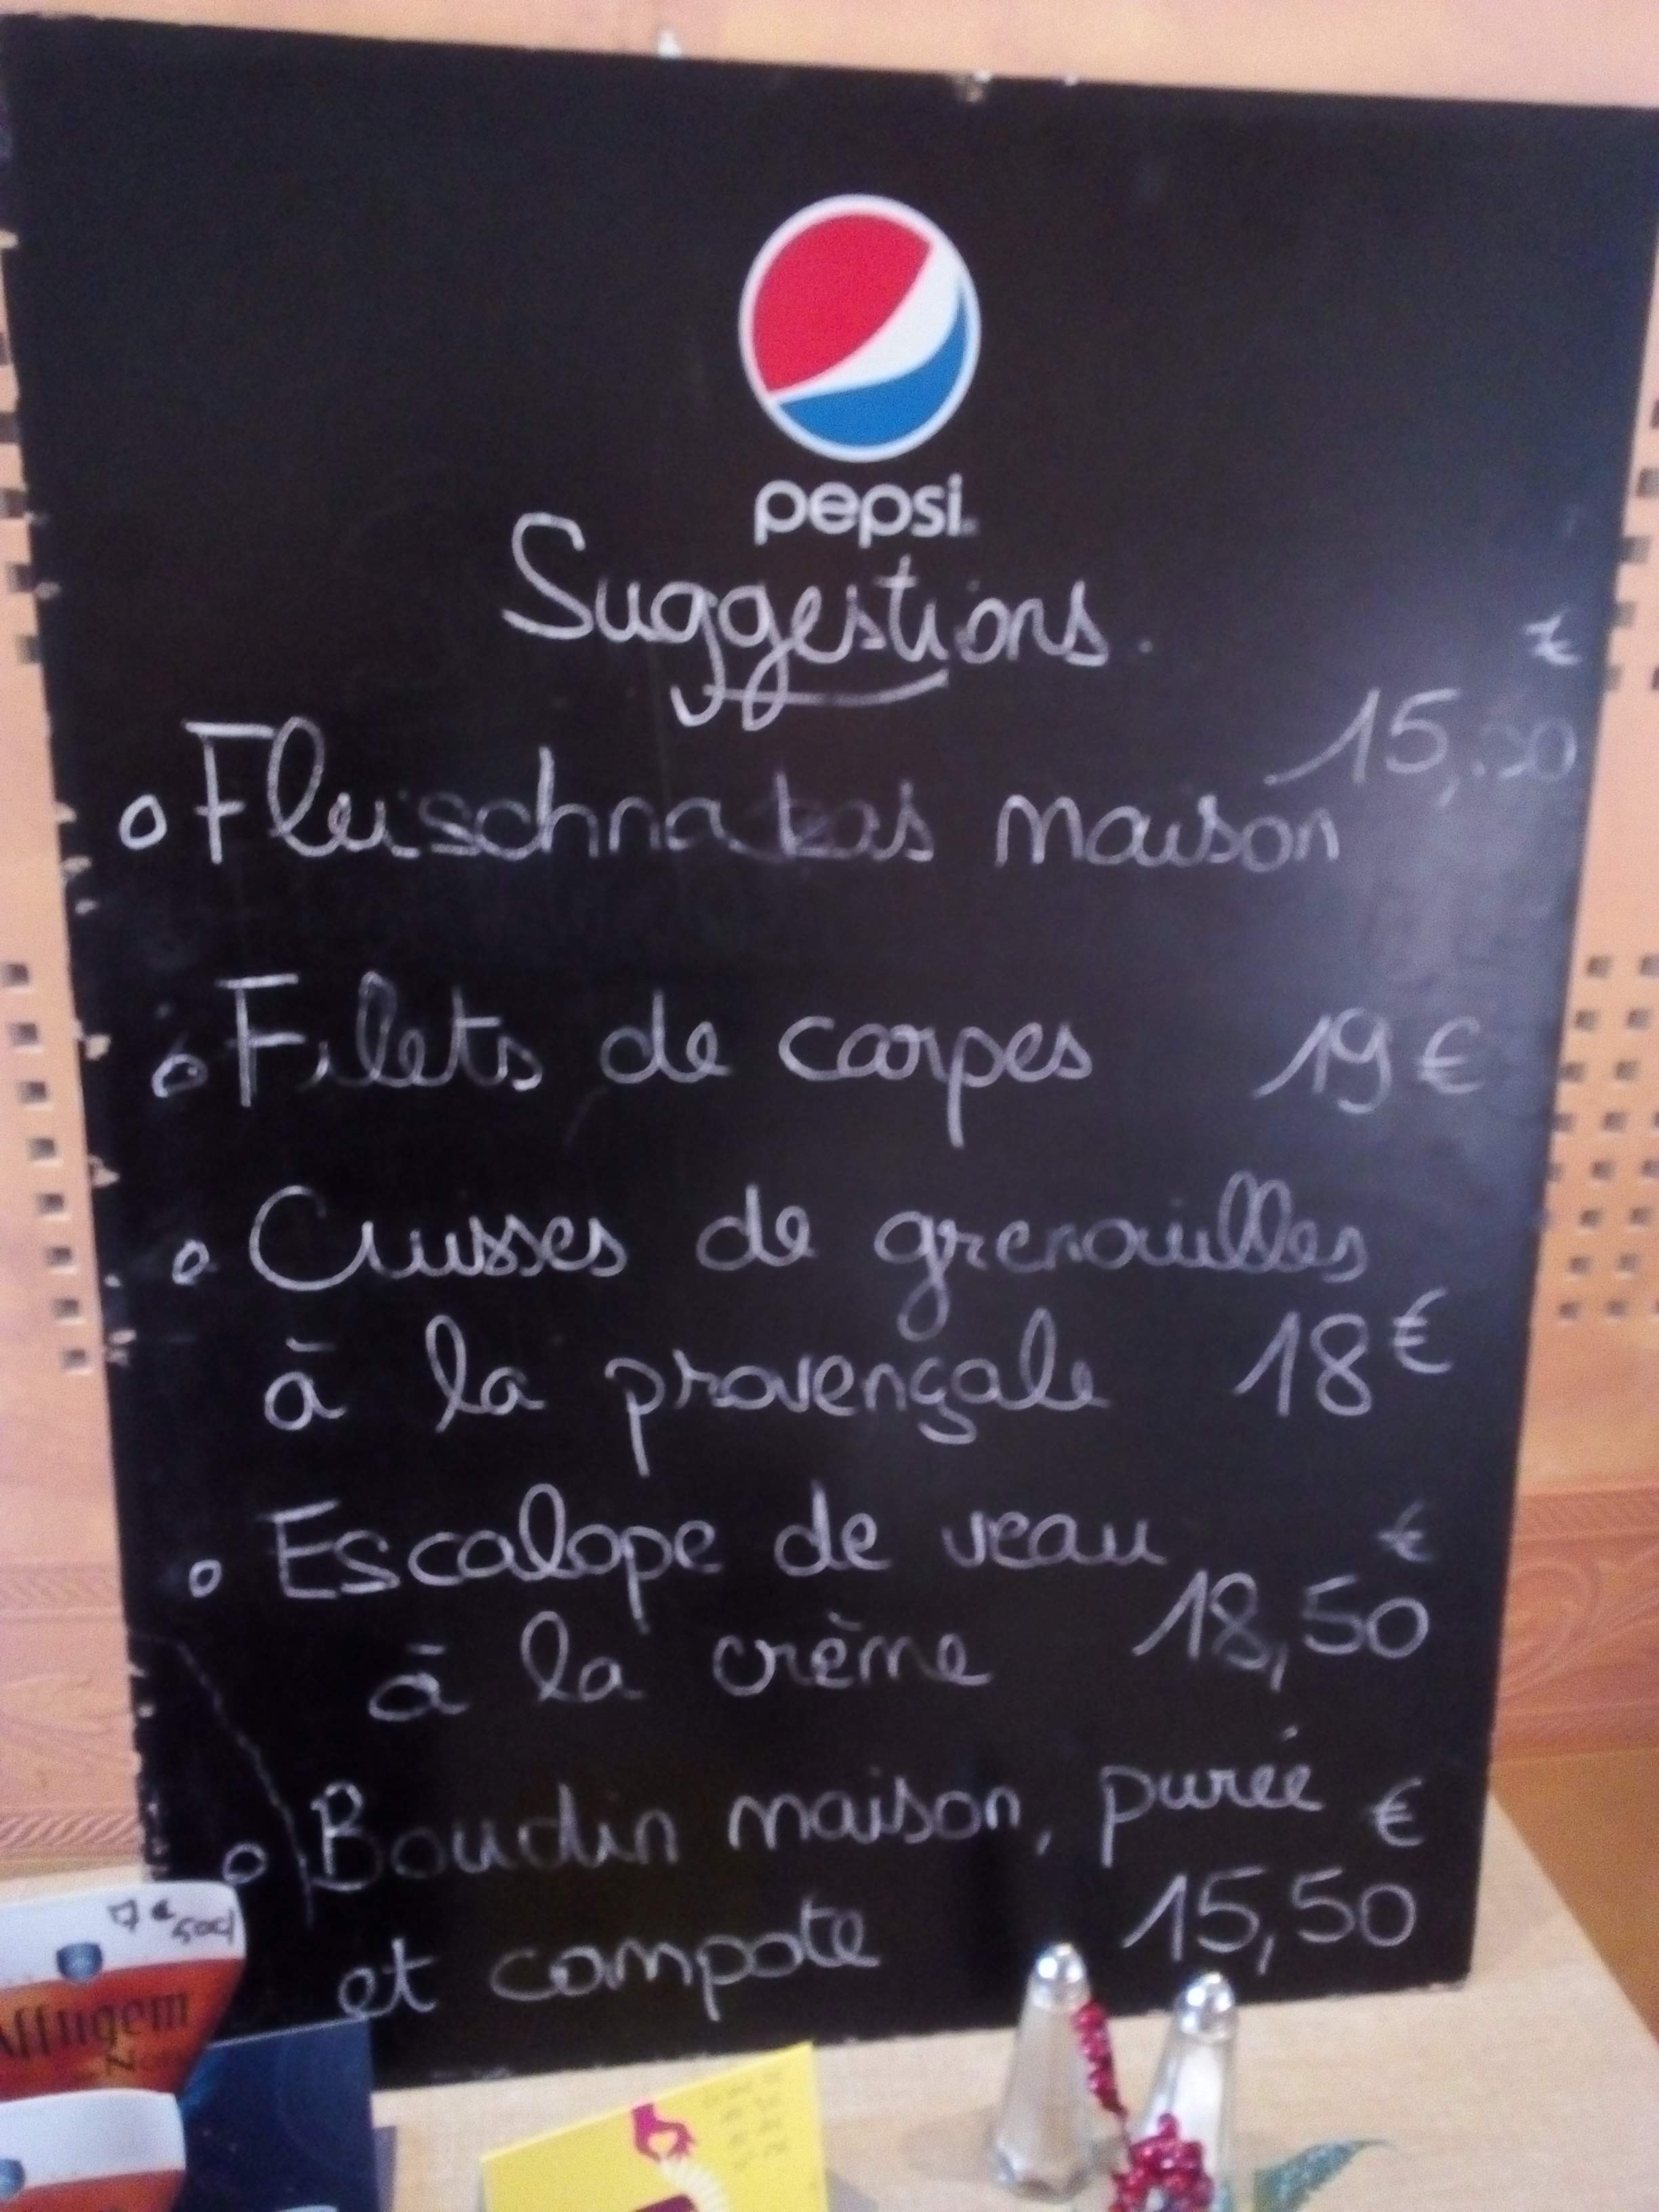 pepsi
Suggestions.
€
15,
o Fleischnakas maison
o Filets de carpes 19 €
o Cuisses de grenouilles
à la provençale 18 €
o Escalope de veau €
à la crème 18,50
o Boudin maison, purée €
et compote 15,50
7 € 50cl
Affligem